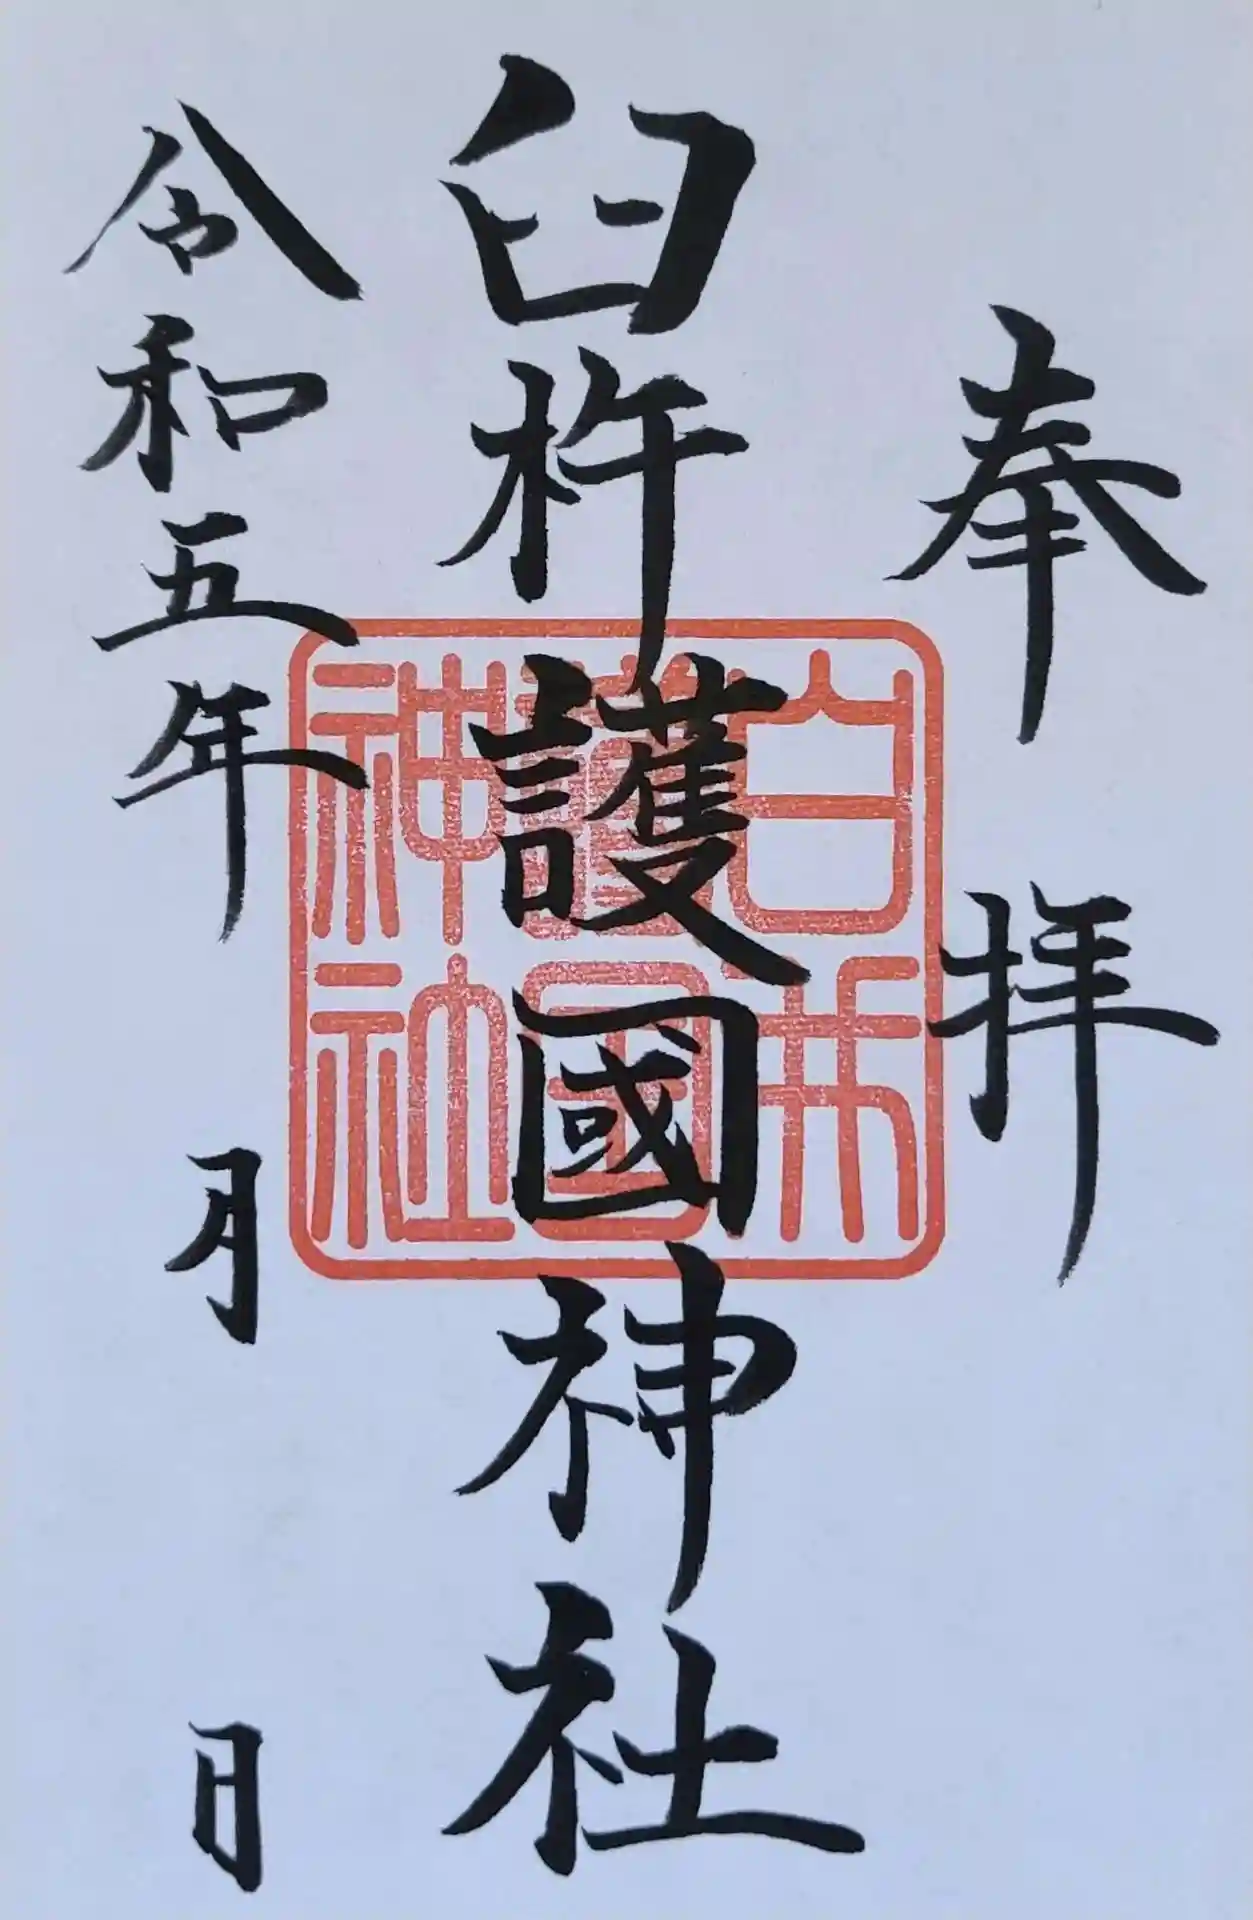 奉拝
臼杵護國神社
臼杵護国神社
令和五年 月 日